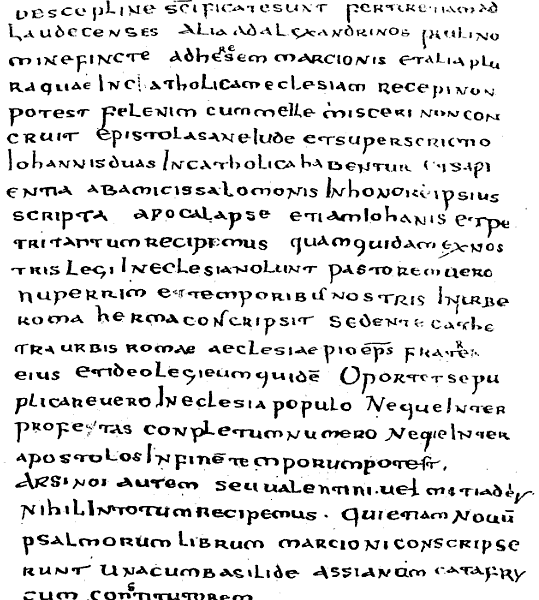 DESCEPLINE SCIFICATESUNT FERTUR ETIAM AD
LAUDECENSES ALIA AD ALEXANDRINOS PAULI NO
MINE FINCTE AD HERESEM MARCIONIS ET ALIA PLU
RA QUAE IN CATHOLICAM ECLESIAM RECEPI NON
POTEST FEL ENIM CUM MELLE MISCERI NON CON
CRUIT EPISTOLA SANE IUDE ET SUPERSCRICTIO
IOHANNIS DUAS IN CATHOLICA HABENTUR ET SAPI
ENTIA AB AMICIS SALOMONIS IN HONOREM IPSIUS
SCRIPTA APOCALAPSE ETIAM IOHANIS ET PE
TRI TANTUM RECIPEMUS QUAM QUIDAM EX NOS
TRIS LEGI IN ECLESIA NOLUNT PASTOREM UERO
NUPERRIM E TEMPORIBUS NOSTRIS IN URBE
ROMA HERMA CONSCRIPSIT SEDENTE CATHE
TRA URBIS ROMAE AECLESIAE PIO EPS FRATER
EIUS ET IDEO LEGI EUM QUIDE OPORTET SE PU
PLICARE UERO IN ECLESIA POPULO NEQUE INTER
PROFETAS CONPLETUM NUMERO NEQUE INTER
APOSTOLOS IN FINE TEMPORUM POTEST.
ARSINOI AUTEM SEU UALENTINI. UEL MITIADES
NIHIL IN TOTUM RECIPEMUS. QUI ETIAM NOUU
PSALMORUM LIBRUM MARCIONI CONSCRIPSE
RUNT UNA CUM BASILIDE ASSIANOM CATAFRY
CUM CONSTITUTOREM